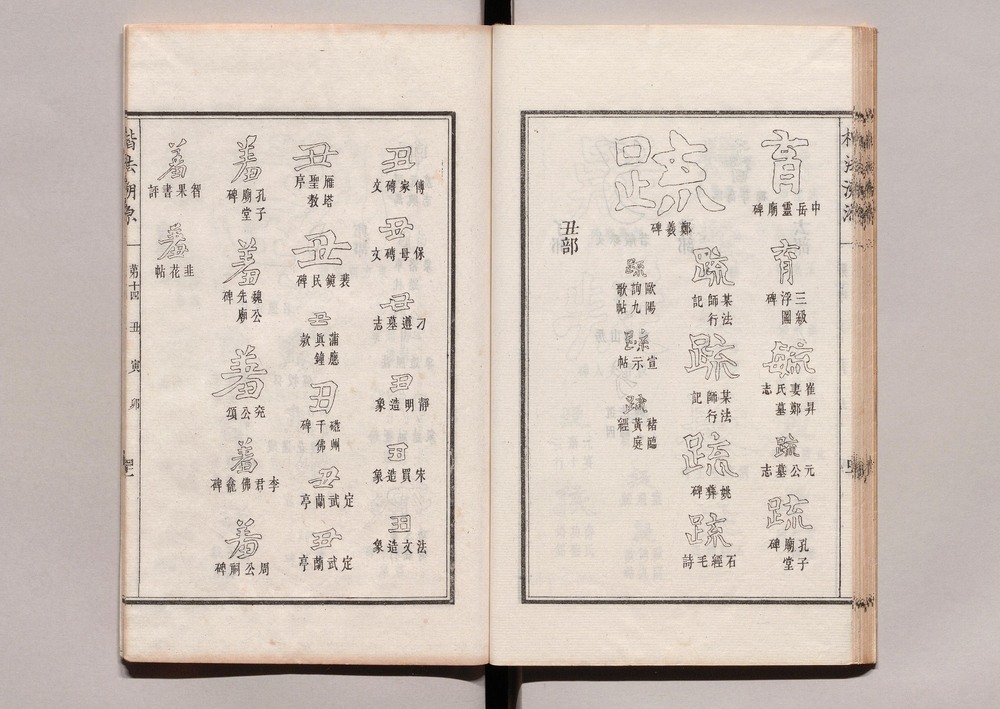 育
中岳靈廟碑
育
三級浮圖碑
毓
崔昇妻鄭氏墓志
疏
元公墓志
疏
孔子廟堂碑
疏
鄭義碑
疏
某法師行記
疏
某法師行記
疏
姚彝碑
疏
石經毛詩
疏
歐陽詢九歌帖
疏
宣示帖
疏
褚臨黃庭經
丑部
丑
傅家磚文
丑
保母磚文
丑
刁遵墓志
丑
靜明造象
丑
宋買造象
丑
法文造象
丑
雁塔聖教序
丑
裴鏡民碑
丑
蒲應眞鐘款
丑
磁州千佛碑
丑
定武蘭亭
丑
定武蘭亭
羞
孔子廟堂碑
羞
魏公先廟碑
羞
兗公頌
羞
李君佛龕碑
羞
周公祠碑
羞
智果書評
羞
韭花帖
楷法溯源 第十四 丑 寅 卯